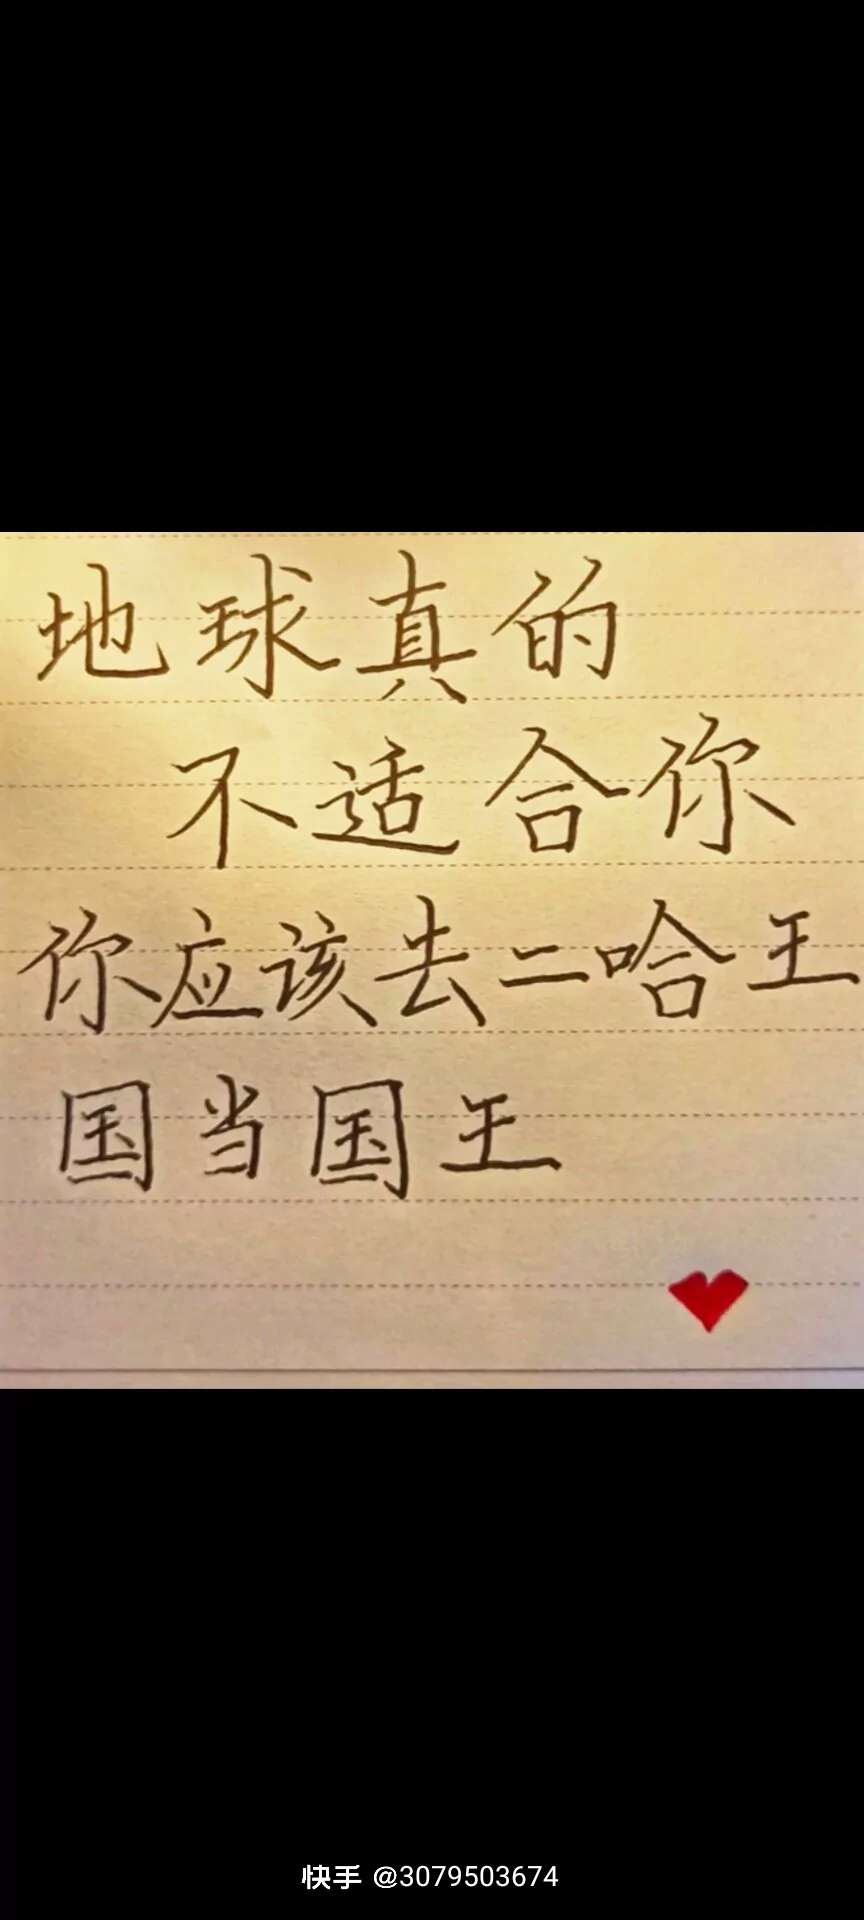 地球真的
不适合你
你应该去二哈王
国当国王
快手 @3079503674